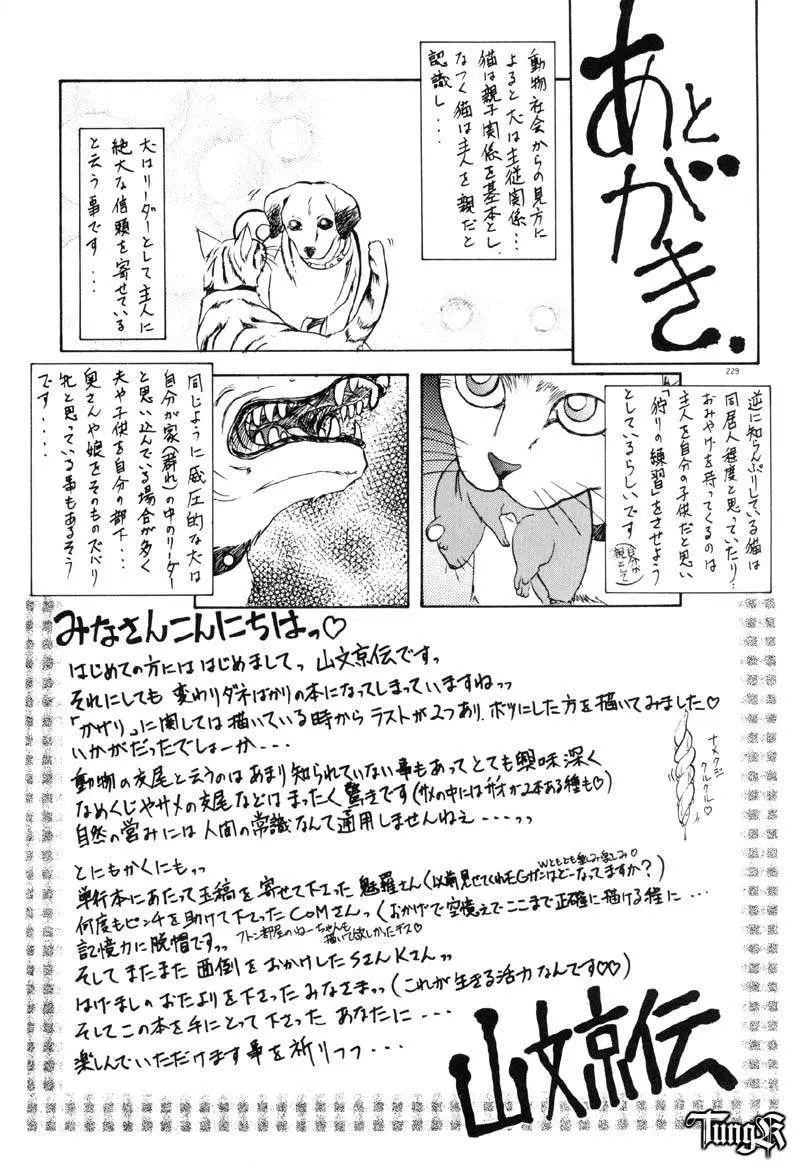 あとがき.
動物社会からの見方に
よると犬は主従関係…
猫は親子関係を基本とし
なつく猫は主人を親だと
認識し…
犬はリーダーとして主人に
絶大な信頼を寄せている
と云う事です…
229
逆に知らんぷりしている猫は
同居人程度と思っていたり…
おみやげを持ってくるのは
主人を自分の子供だと思い
「狩りの練習」をさせよう
としているらしいです
(自分が親として)
同じように威圧的な犬は
自分が家(群れ)の中のリーダー
と思い込んでいる場合が多く
夫や子供を自分の部下…
奥さんや娘をそのものズバリ
牝と思っている事もあるそう
です…
みなさんこんにちはっ♡
はじめての方には はじめまして っ 山文京伝ですっ
それにしても 変わりダネばかりの本になってしまっていますねっっ
「カザリ」に関しては描いている時からラストが2つあり、ボツにした方を描いてみました♡
いかがだったでしょーか…
動物の交尾と云うのはあまり知られていない事もあってとても興味深く
なめくじやサメの交尾などはまったく驚きです(サメの中にはサオが2本ある種も♡)
自然の営みには人間の常識なんて通用しませんねぇ…っっ
ナメクジ
クルクル♡
とにもかくにもっっ
単行本にあたって玉稿を寄せて下さった 魅羅さん(以前見せてくれたEGガンはどーなってますか?)
何度もピンチを助けて下さったCOMさんっ(おかげで空憶えでここまで正確に描ける程に…
記憶力に脱帽ですっっ
フトン部屋のねーちゃんも
描いて欲しかったデス♡
そして またまた 面倒をおかけしたSさんKさんっっ
はげましのおたよりを下さったみなさまっっ(これが生きる活力なんです♡♡)
そしてこの本を手にとって下さった あなたに…
楽しんでいただけます事を祈りつつ…
山文京伝
TungR